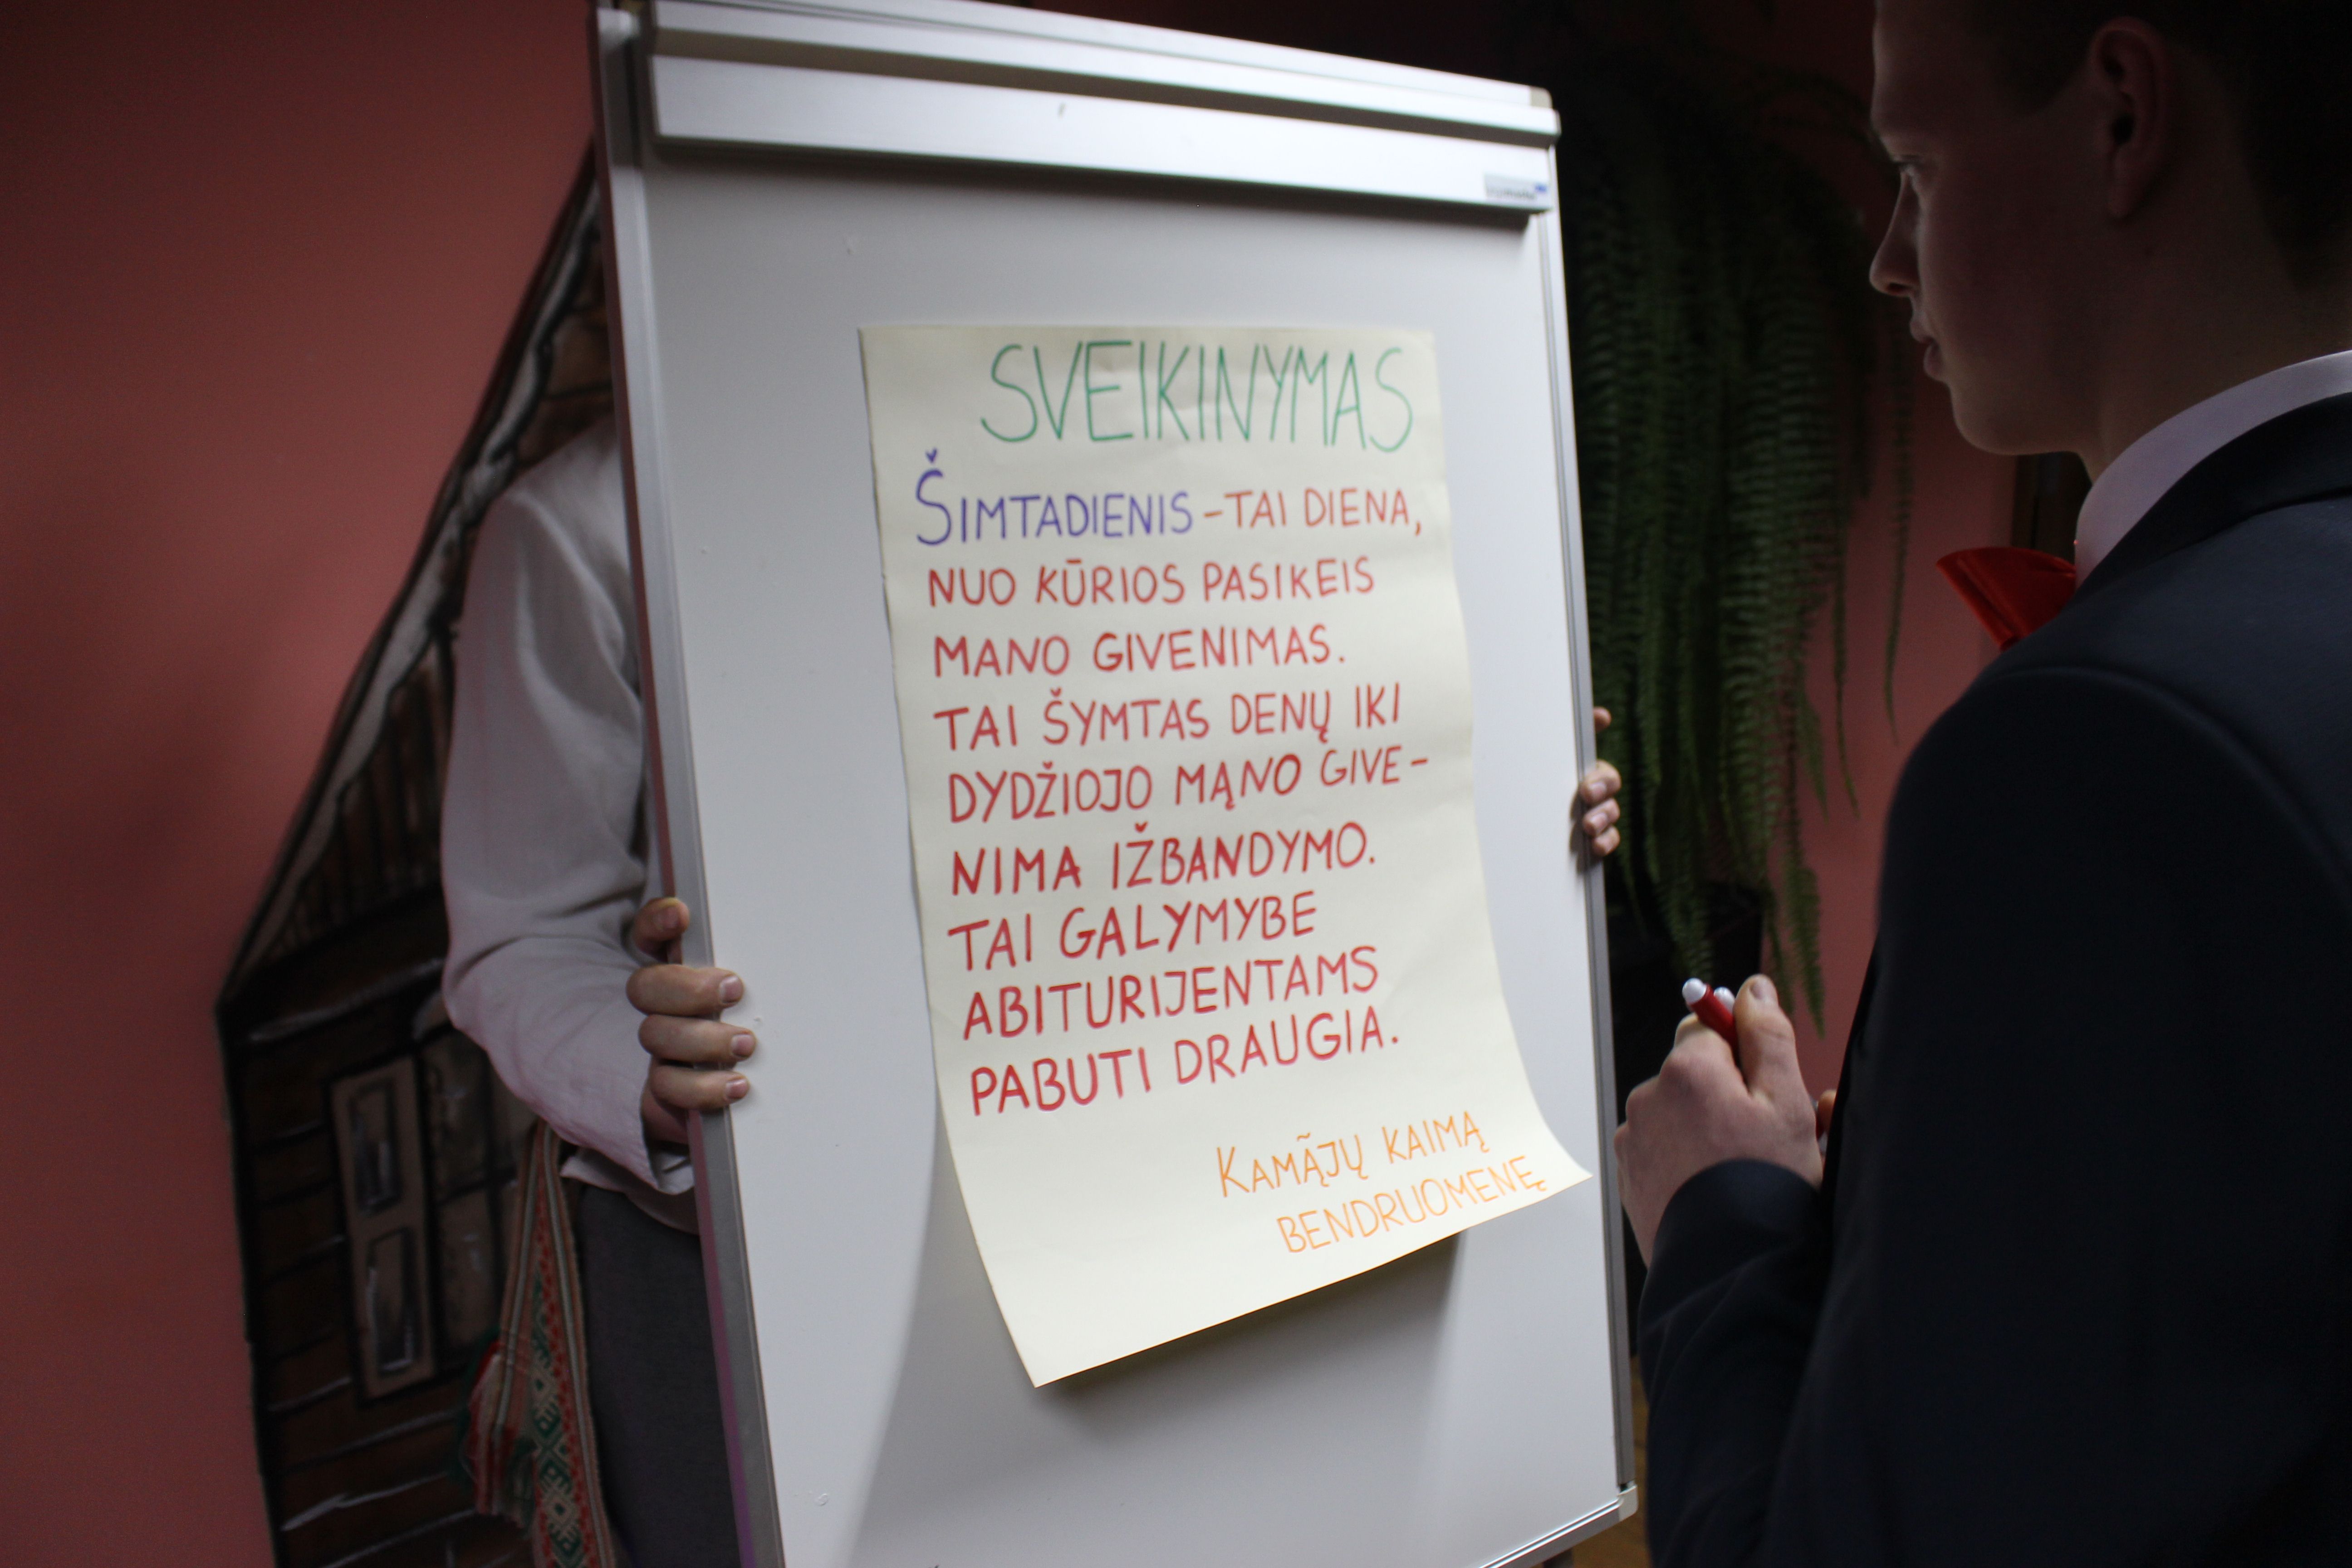 SVEIKINYMAS
ŠIMTADIENIS - TAI DIENA,
NUO KŪRIOS PASIKEIS
MANO GIVENIMAS.
TAI ŠYMTAS DENŲ IKI
DYDŽIOJO MĄNO GIVE-
NIMA IŽBANDYMO.
TAI GALYMYBE
ABITURIJENTAMS
PABUTI DRAUGIA.
KAMÃJŲ KAIMĄ
BENDRUOMENĘ